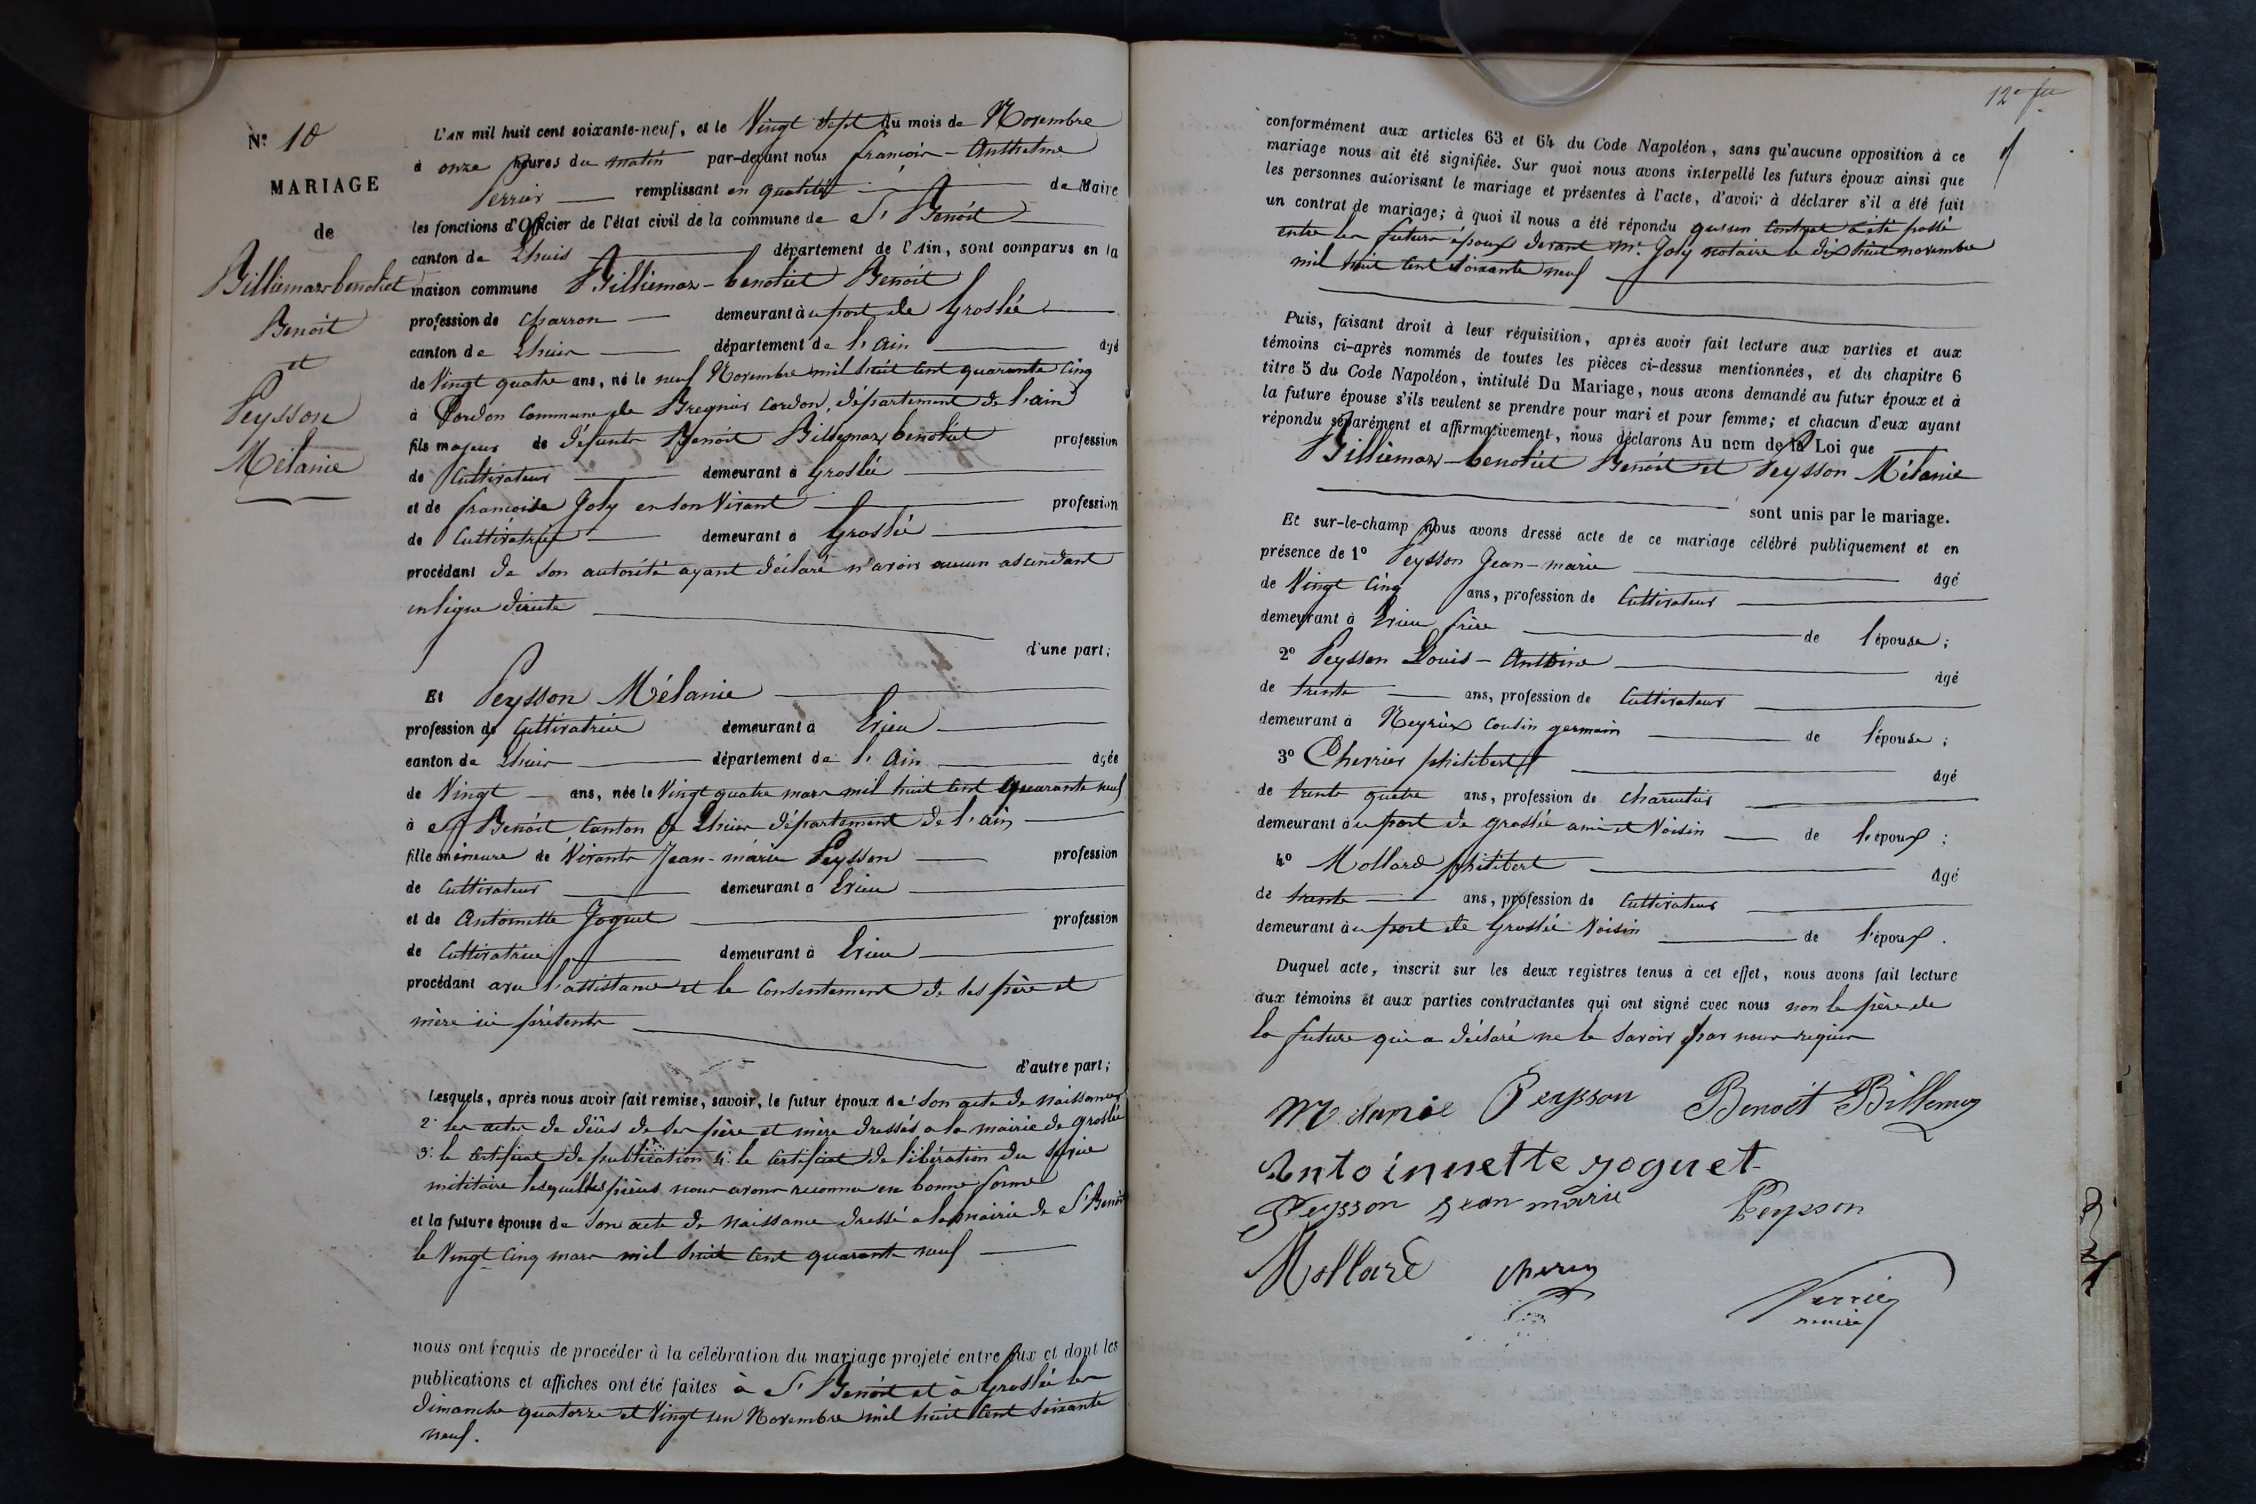 N° 10
MARIAGE
de
Billiemaz-benoliet
Benoit
et
Peysson
Mélanie
L'AN mil huit cent soixante-neuf, et le Vingt Sept du mois de Novembre
à onze heures du matin par-devant nous françois - Anthelme
Perrier remplissant en qualité de Maire
les fonctions d'Officier de l'état civil de la commune de St Benoit
canton de Lhuis département de l'Ain, sont comparus en la
maison commune Billiemaz - benoliet Benoit
profession de charron demeurant à u port de Groslée
canton de Lhuis département de l'ain âgé
de Vingt quatre ans, né le neuf Novembre mil huit cent quarante cinq
à Cordon commune de Bregnier Cordon, département de l'ain
fils majeur de défunts Benoit Billiemaz benoliet profession
de Cultivateur demeurant à Groslée
et de françoise Joly en son Vivant profession
de Cultivatrice demeurant à Groslée
procédant de son autorité ayant déclaré n'avoir aucun ascendant
en ligne directe
d'une part;
Et Peysson Mélanie
profession de Cultivatrice demeurant à Izieu
canton de Lhuis département de l'Ain âgée
de Vingt ans, née le Vingt quatre mars mil huit cent quarante neuf
à St Benoit, Canton de Lhuis département de l'ain
fille mineure de Vivants Jean-marie Peysson profession
de Cultivateur demeurant à Izieu
et de Antoinette Joguet profession
de Cultivatrice demeurant à Izieu
procédant avec l'assistance et le Consentement de ses père et
mère ici présents
d'autre part;
Lesquels, après nous avoir fait remise, savoir, le futur époux de 1° Son acte de naissance
2° les actes de décès de ses père et mère dressés a la mairie de Groslée
3° le certificat de publication 4° le certificat de libération du service
militaire lesquelles pièces nous avons reconnu en bonne forme
et la future épouse de Son acte de naissance dressé a la mairie de St Benoit
le Vingt Cinq mars mil huit cent quarante neuf
nous ont requis de procéder à la célébration du mariage projeté entre eux et dont les
publications et affiches ont été faites à St Benoit et à Groslée les
dimanche quatorze et Vingt un Novembre mil huit cent soixante
neuf.
conformément aux articles 63 et 64 du Code Napoléon, sans qu'aucune opposition à ce
mariage nous ait été signifiée. Sur quoi nous avons interpellé les futurs époux ainsi que
les personnes autorisant le mariage et présentes à l'acte, d'avoir à déclarer s'il a été fait
un contrat de mariage; à quoi il nous a été répondu qu'un Contrat a été passé
entre les futurs époux devant Mr. Joly notaire le dix huit novembre
mil huit cent soixante neuf
Puis, faisant droit à leur réquisition, après avoir fait lecture aux parties et aux
témoins ci-après nommés de toutes les pièces ci-dessus mentionnées, et du chapitre 6
titre 5 du Code Napoléon, intitulé Du Mariage, nous avons demandé au futur époux et à
la future épouse s'ils veulent se prendre pour mari et pour femme; et chacun d'eux ayant
répondu séparément et affirmativement, nous déclarons Au nom de la Loi que
Billiemaz - benoliet Benoit et Peysson Mélanie
sont unis par le mariage.
Et sur-le-champ nous avons dressé acte de ce mariage célébré publiquement et en
présence de 1° Peysson Jean-marie âgé
de Vingt Cinq ans, profession de Cultivateur
demeurant à Izieu frère de l'épouse;
2° Peysson Louis - Antoine âgé
de trente ans, profession de Cultivateur
demeurant à Neyrieu cousin germain de l'épouse;
3° Cherrier philibert âgé
de trente quatre ans, profession de charcutier
demeurant à u port de groslée ami et Voisin de l'époux;
4° Mollard philibert âgé
de trente ans, profession de Cultivateur
demeurant à u port de Groslée Voisin de l'époux.
Duquel acte, inscrit sur les deux registres tenus à cet effet, nous avons fait lecture
aux témoins et aux parties contractantes qui ont signé avec nous non le père de
la future qui a déclaré ne le savoir par nous requis
Melanie Peysson Benoit Billemaz
Antoinnette joguet
Peysson Jean marie Peysson
Mollard
Perrier
maire